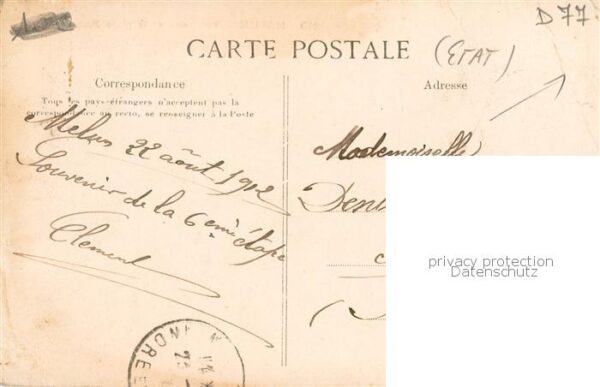 D77
CARTE POSTALE
(ETAT)
Correspondance
Tous les pays étrangers n'acceptent pas la
correspondance au recto, se renseigner à la Poste
Melun 22 août 1912
Souvenir de la 6eme étape
Clement
Adresse
Mademoiselle
privacy protection
Datenschutz